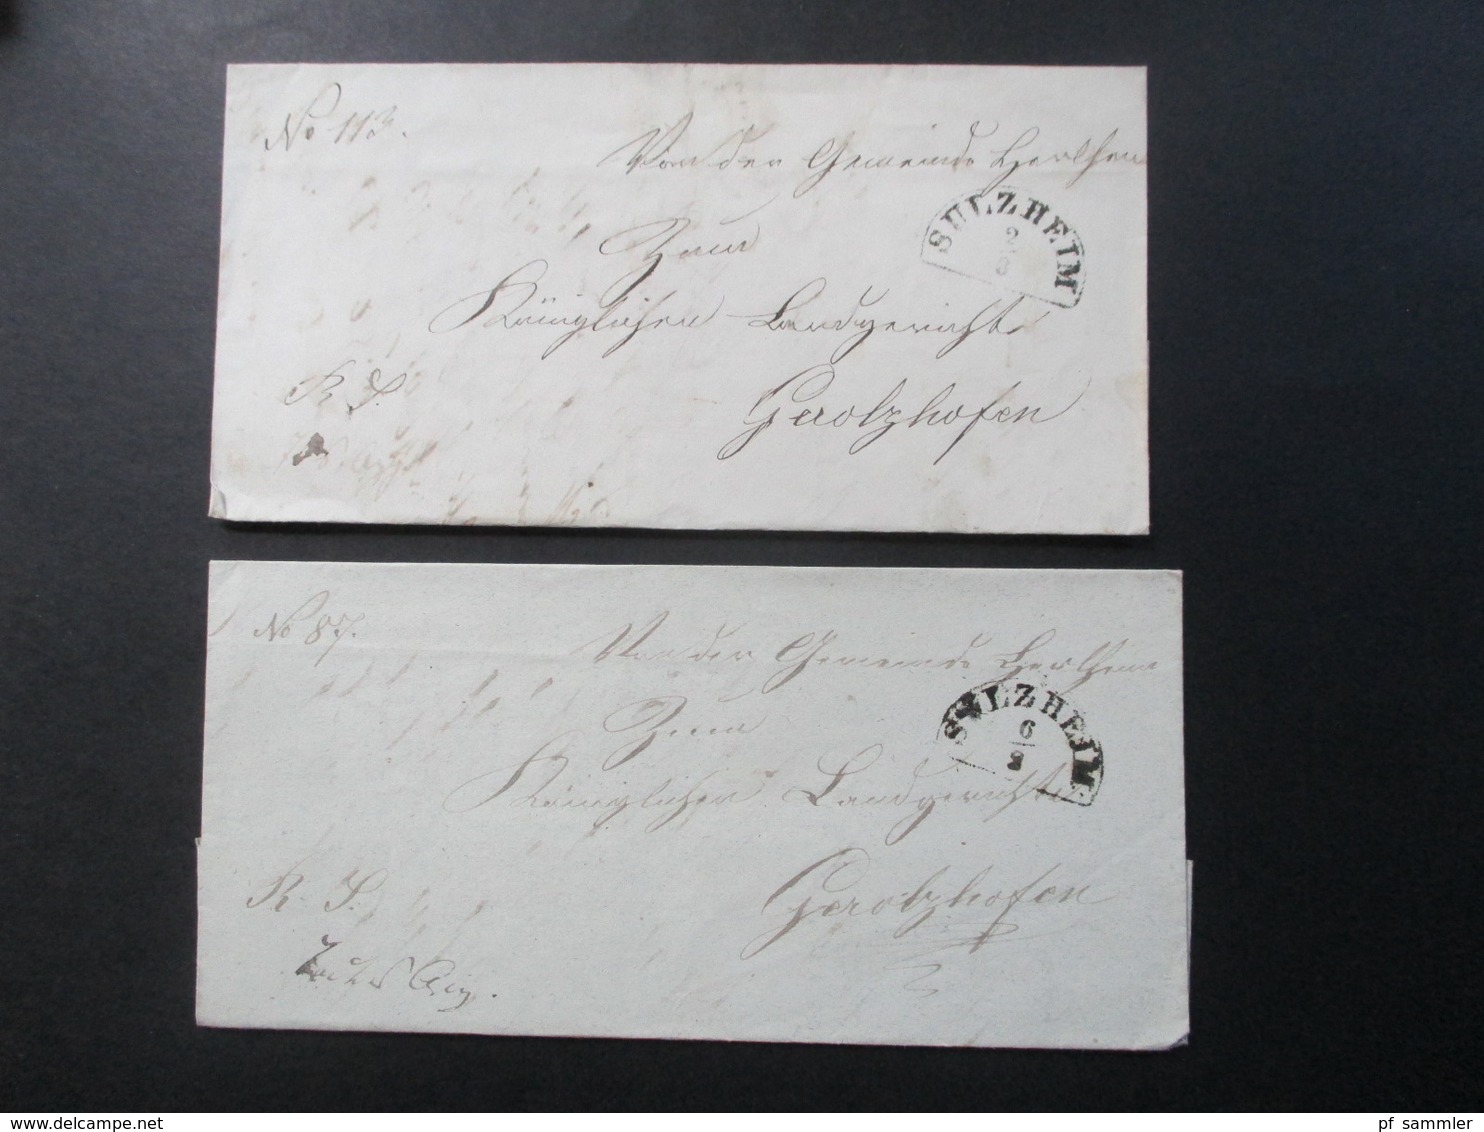 No 113.
Von der Gemeinde Herlheim
SULZHEIM
2
8
Zum
Königlichen Landgerichte
R. S.
Gerolzhofen
No 87.
Von der Gemeinde Herlheim
SULZHEIM
6
8
Zum
Königlichen Landgerichte
R. S.
Gerolzhofen
www.delcampe.net
pf_sammler